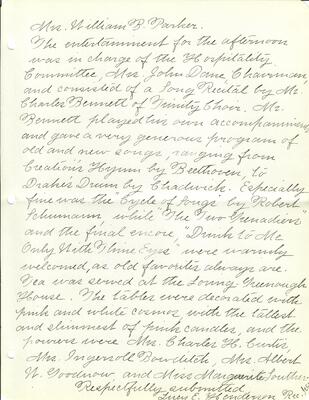 Mrs. William B. Parker.
The entertainment for the afternoon
was in charge of the Hospitality
Committee, Mrs. John Dane, Chairman,
and consisted of a Song Recital by Mr.
Charles Bennett of Trinity Choir. Mr.
Bennett played his own accompaniments
and gave a very generous program of
old and new songs, ranging from
Creation's Hymn by Beethoven, to
Drake's Drum by Chadwick. Especially
fine was the "Cycle of Songs" by Robert
Schumann, while "The Two Grenadiers"
and the final encore, "Drink to Me
Only With Thine Eyes" were warmly
welcomed, as old favorites always are.
Tea was served at the Loring Greenough
House. The tables were decorated with
pink and white cosmos, with the tallest
and slimmest of pink candles, and the
pourers were Mrs. Charles H. Curtis,
Mrs. Ingersoll Bowditch, Mrs. Albert
W. Goodnow, and Miss Marguerite Souther.
Respectfully submitted,
Lucy E. Henderson Rec.